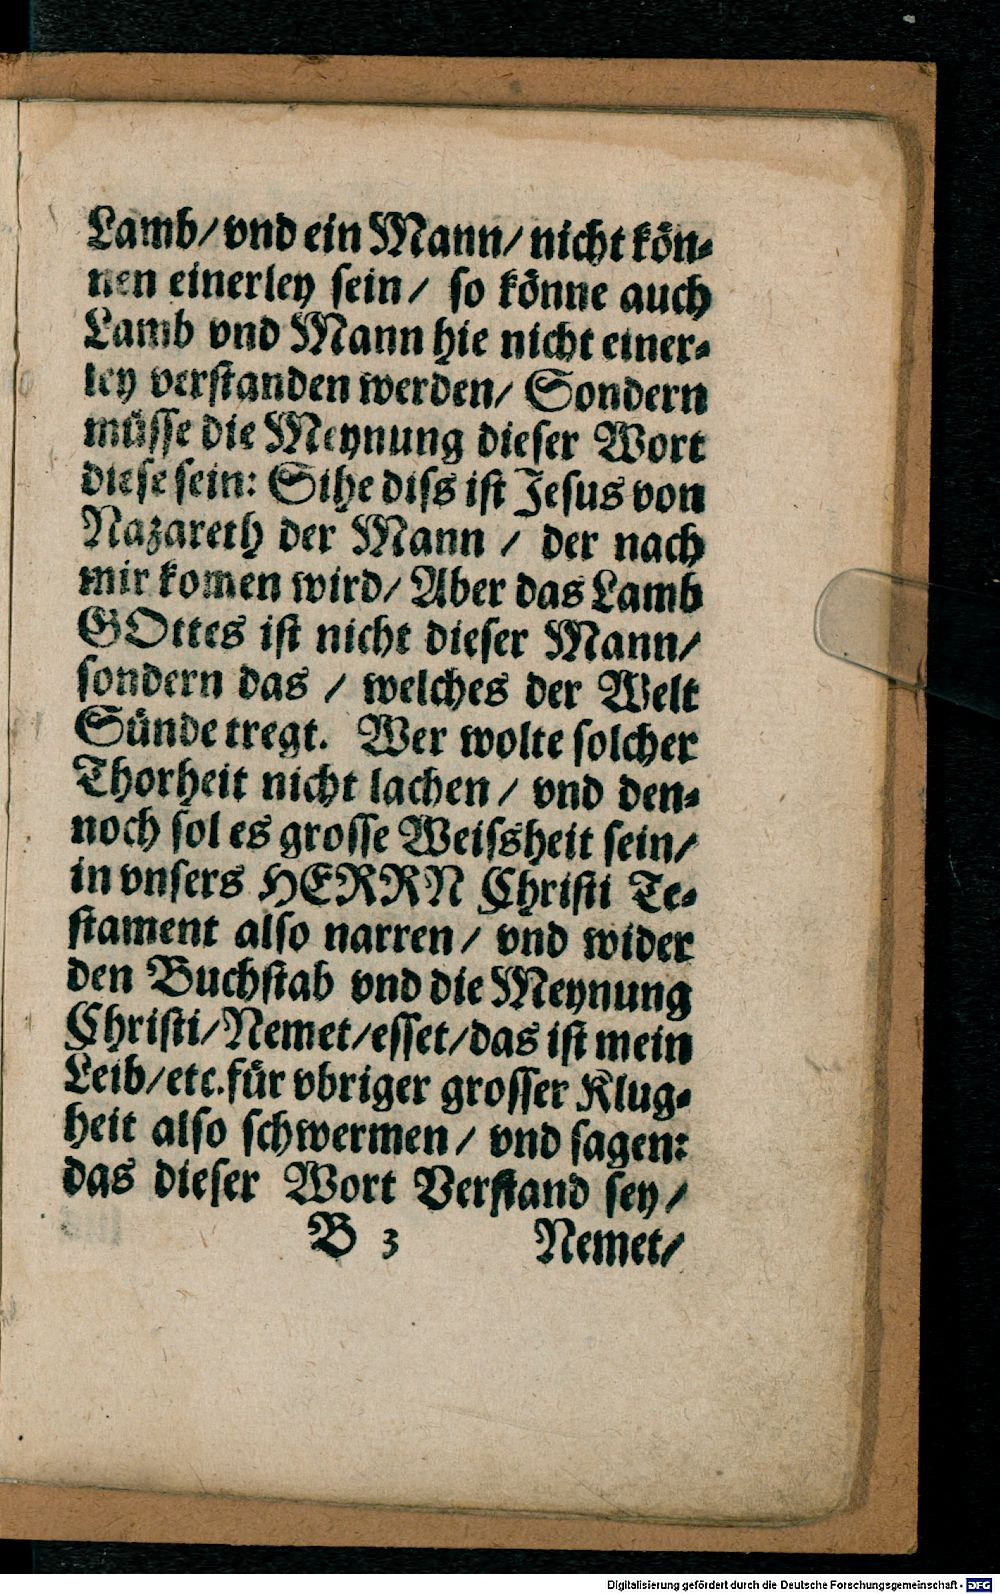 Lamb/ vnd ein Mann/ nicht kön-
nen einerley sein/ so könne auch
Lamb vnd Mann hie nicht einer-
ley verstanden werden/ Sondern
müsse die Meynung dieser Wort
diese sein: Sihe diss ist Jesus von
Nazareth der Mann / der nach
mir komen wird/ Aber das Lamb
GOttes ist nicht dieser Mann/
sondern das / welches der Welt
Sünde tregt. Wer wolte solcher
Thorheit nicht lachen / vnd den-
noch sol es grosse Weissheit sein/
in vnsers HERRN Christi Te-
stament also narren / vnd wider
den Buchstab vnd die Meynung
Christi/ Nemet/ esset/ das ist mein
Leib/ etc. für vbriger grosser Klug-
heit also schwermen / vnd sagen:
das dieser Wort Verstand sey /
B 3 Nemet/
Digitalisierung gefördert durch die Deutsche Forschungsgemeinschaft - DFG